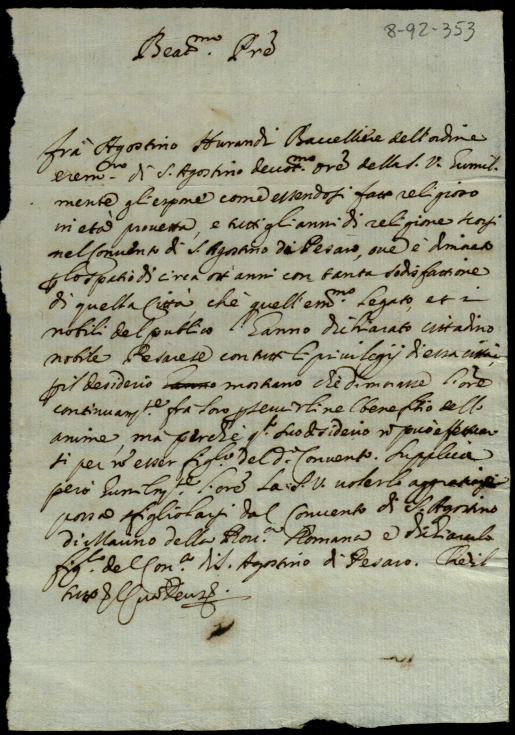 8-92-353
Beat.mo Pre
fra Agostino Hurandi Baccelliere dell'ordine
erem.no di S. Agostino devot.mo ore della S. V. humil-
mente gli espone come essendosi fatto religioso
in età provetta, e tutti gli anni di religione scorsi
nel Convento di S. Agostino di Pesaro, ove è dimorato
p lo spatio di circa otti anni con tanta sodisfattione
di quella Città, che quell'em.mo Legato, et i
nobili del publico l'hanno dichiarato cittadino
nobile Pesarese con tutti li privilegij di essa città,
p il desiderio mostrano che dimorasse l'ore
continuam.te fra loro p servirli nel benefitio dell'
anime, ma perche q.to suo desiderio nò può effettuar-
si per nò esser figlio del d.o Convento. Supplica
però humilm.te l'ore la S. V. volerlo aggratiare
possa sfigliolarsi dal Convento di S. Agostino
di della Prov.a Romana e dichiararlo
fig.lo del Con.to di S. Agostino di Pesaro. Che il
tutto